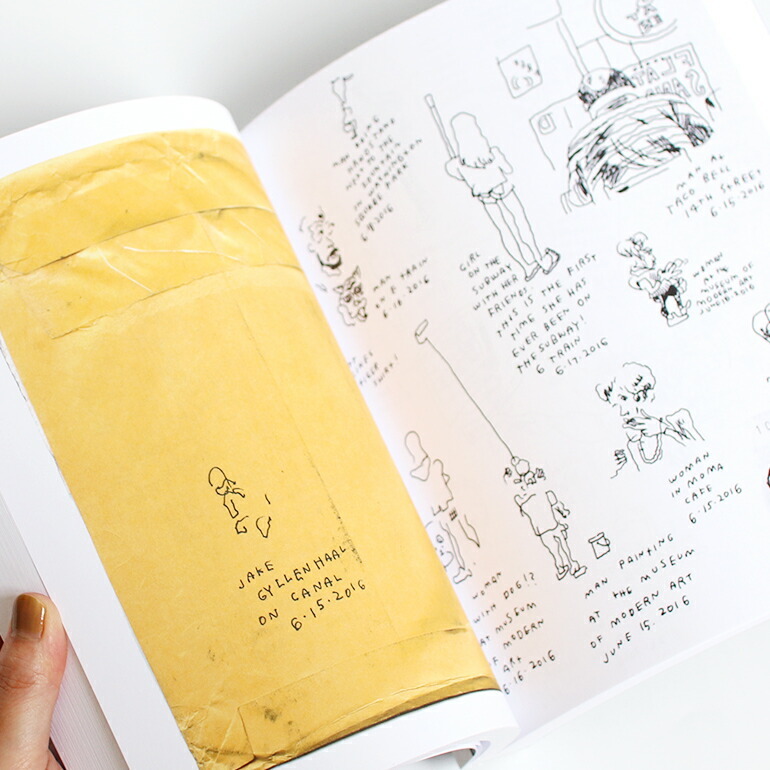 JAKE
GYLLENHAAL
ON CANAL
6·15·2016
MAN
NEXT TO THE
IN WASHINGTON
SQUARE PARK
6·8·2016
MAN
ON F TRAIN
6·16·2016
GIRL
ON THE
SUBWAY
WITH HER
FRIENDS.
THIS IS THE FIRST
TIME SHE HAS
EVER BEEN ON
THE SUBWAY!
6 TRAIN
6·17·2016
MAN AT
TACO BELL
14TH STREET
6·15·2016
WOMAN
IN THE
MUSEUM OF
MODERN ART
WOMAN
IN MOMA
CAFE
6·15·2016
WOMAN
WITH DOG!?
AT MUSEUM
OF MODERN
ART
6·16·2016
MAN PAINTING
AT THE MUSEUM
OF MODERN ART
JUNE 15. 2016